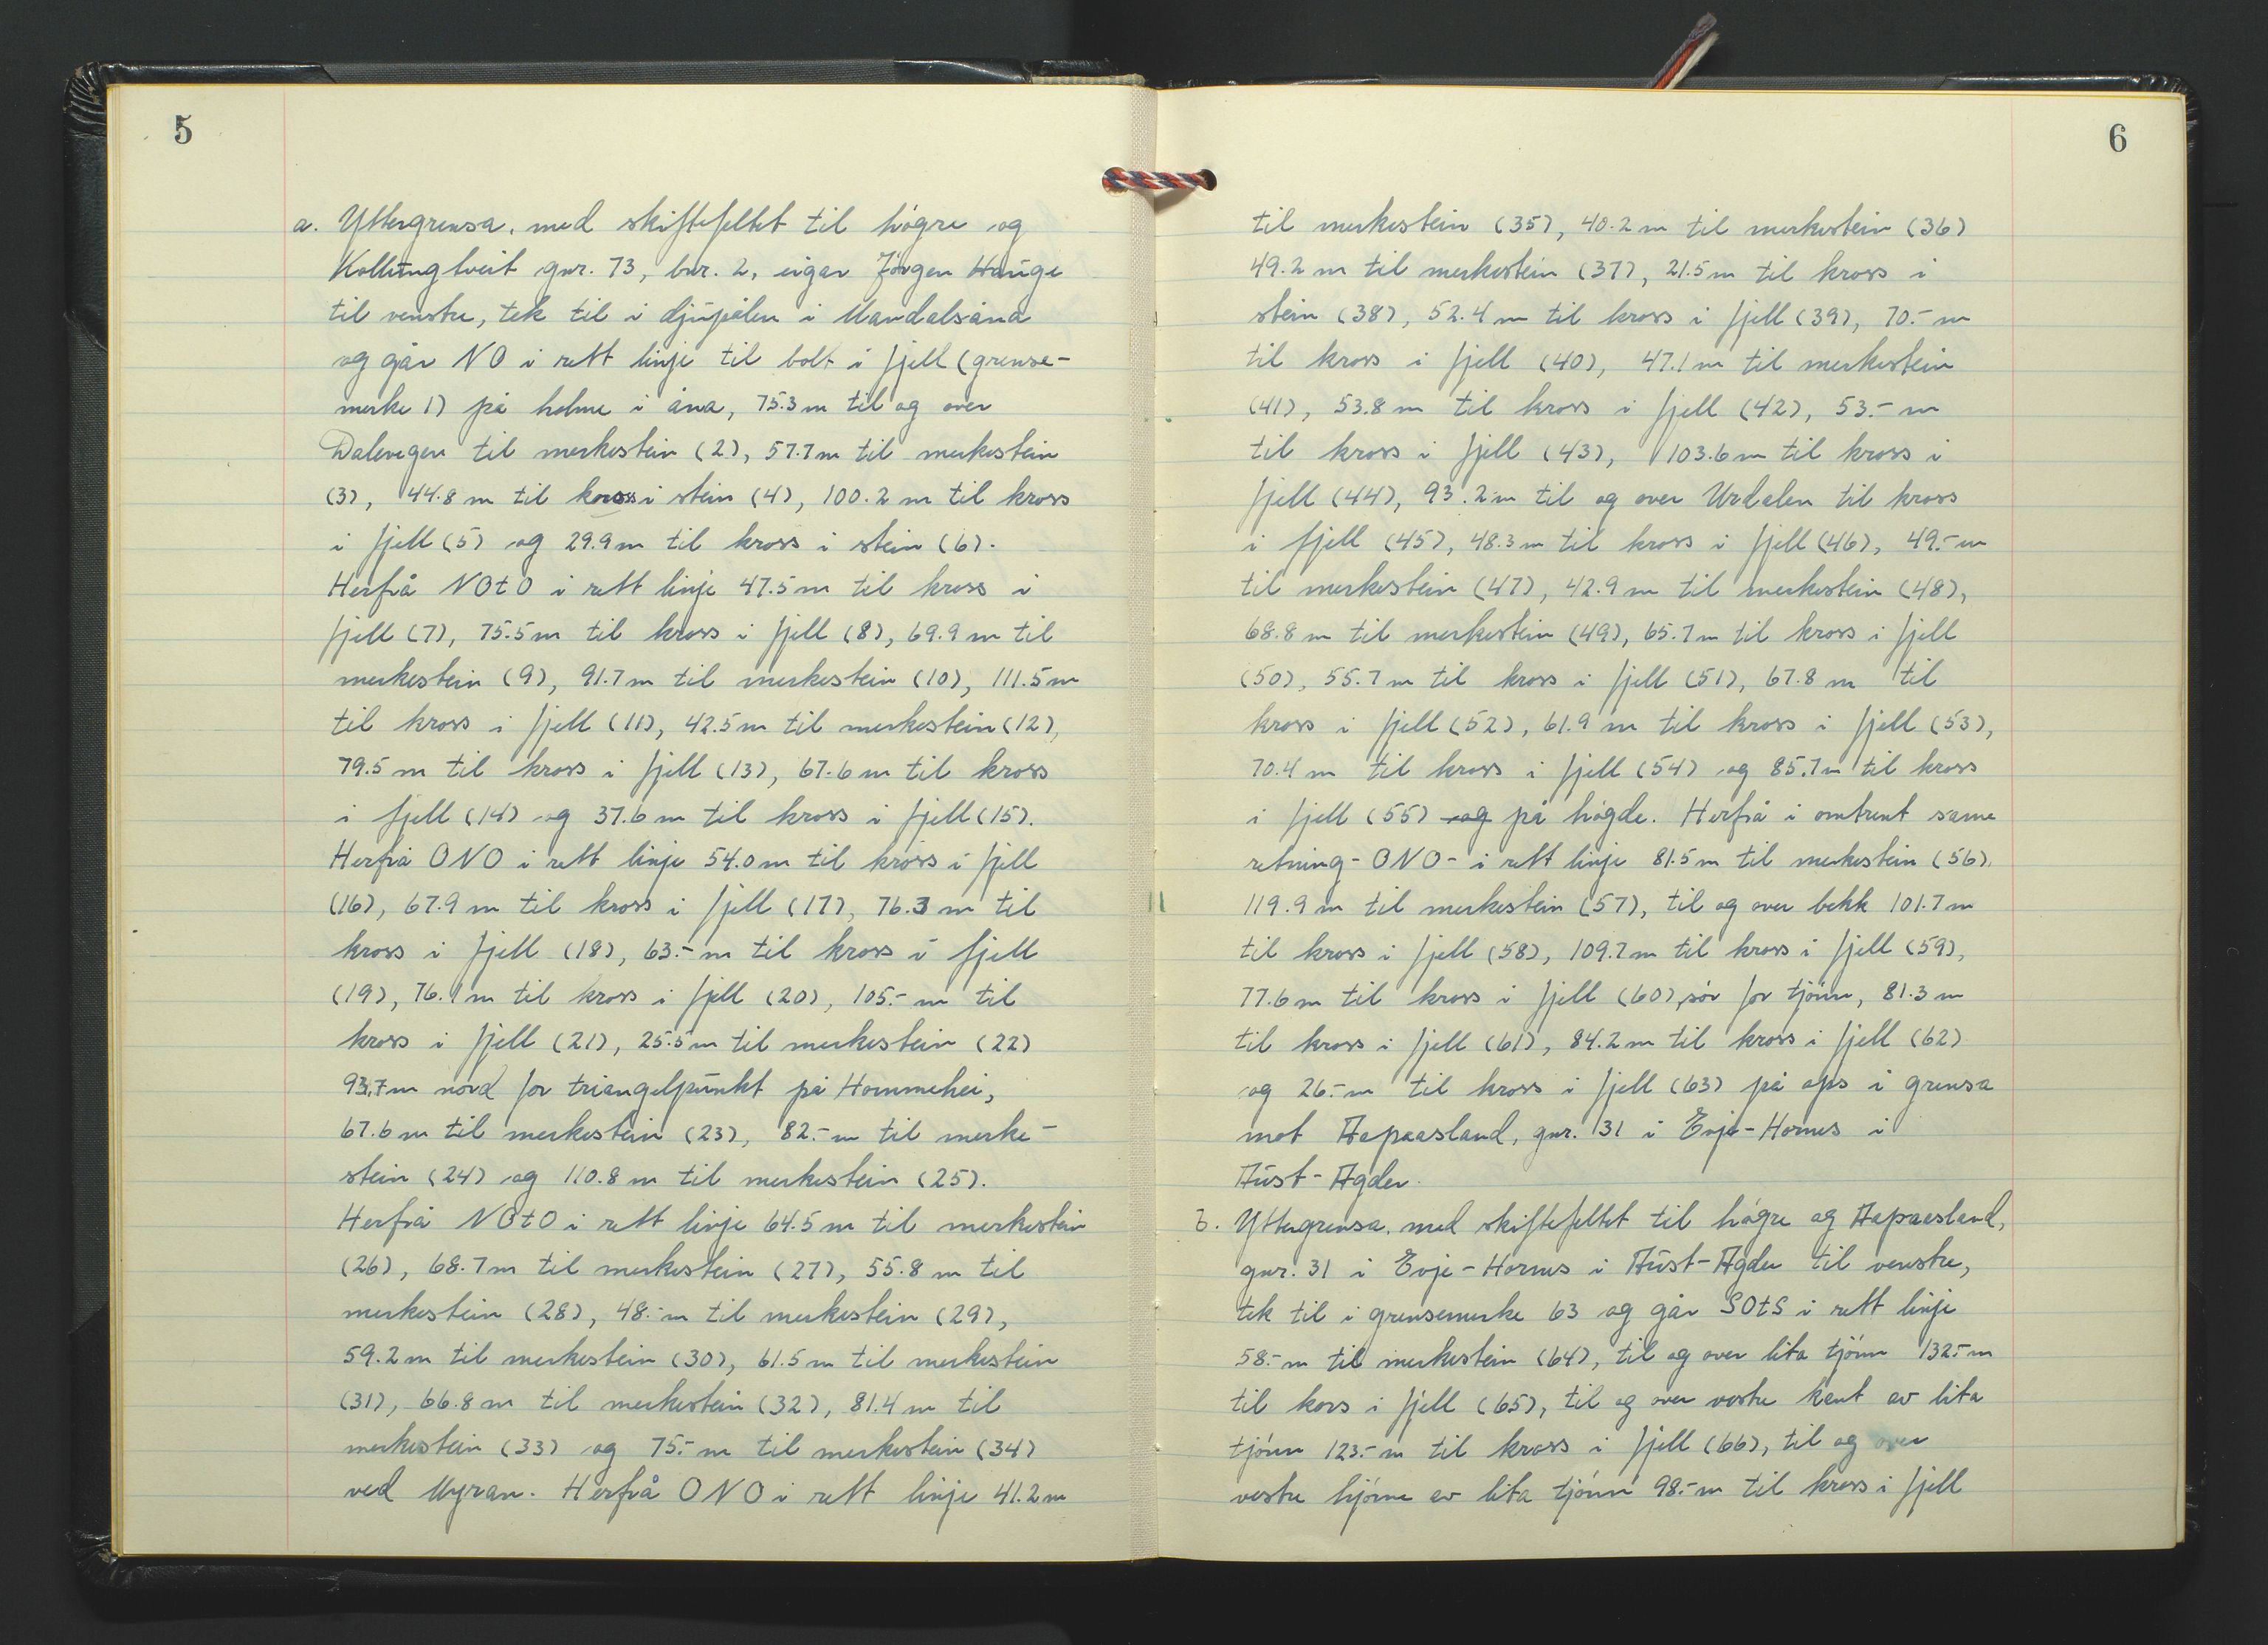 5
a. Yttergrensa, med skiftefeltet til høgre og
Kollungtveit gnr. 73, bnr. 2, eigar Jørgen Hauge
til venstre, tek til i djupålen i Mandalsåna
og går NO i rett linje til bolt i fjell (grense-
merke 1) på holme i åna, 75.3 m til og over
Dalevegen til merkestein (2), 57.7 m til merkestein
(3), 44.8 m til kross i stein (4), 100.2 m til kross
i fjell (5) og 29.9 m til kross i stein (6).
Herfrå NOtO i rett linje 47.5 m til kross i
fjell (7), 75.5 m til kross i fjell (8), 69.9 m til
merkestein (9), 91.7 m til merkestein (10), 111.5 m
til kross i fjell (11), 42.5 m til merkestein (12),
79.5 m til kross i fjell (13), 67.6 m til kross
i fjell (14) og 37.6 m til kross i fjell (15).
Herfrå ONO i rett linje 54.0 m til kross i fjell
(16), 67.9 m til kross i fjell (17), 76.3 m til
kross i fjell (18), 63.- m til kross i fjell
(19), 76.1 m til kross i fjell (20), 105.- m til
kross i fjell (21), 25.5 m til merkestein (22)
93.7 m nord for triangelpunkt på Hommehei,
67.6 m til merkestein (23), 82.- m til merke-
stein (24) og 110.8 m til merkestein (25).
Herfrå NOtO i rett linje 64.5 m til merkestein
(26), 68.7 m til merkestein (27), 55.8 m til
merkestein (28), 48.- m til merkestein (29),
59.2 m til merkestein (30), 61.5 m til merkestein
(31), 66.8 m til merkestein (32), 81.4 m til
merkestein (33) og 75.- m til merkestein (34)
ved Myran. Herfrå ONO i rett linje 41.2 m
6
til merkestein (35), 40.2 m til merkestein (36)
49.2 m til merkestein (37), 21.5 m til kross i
stein (38), 52.4 m til kross i fjell (39), 70.- m
til kross i fjell (40), 47.1 m til merkestein
(41), 53.8 m til kross i fjell (42), 53.- m
til kross i fjell (43), 103.6 m til kross i
fjell (44), 93.2 m til og over Urdalen til kross
i fjell (45), 48.3 m til kross i fjell (46), 49.- m
til merkestein (47), 42.9 m til merkestein (48),
68.8 m til merkestein (49), 65.7 m til kross i fjell
(50), 55.7 m til kross i fjell (51), 67.8 m til
kross i fjell (52), 61.9 m til kross i fjell (53),
70.4 m til kross i fjell (54) og 85.7 m til kross
i fjell (55) og på høgde. Herfrå i omtrent same
retning - ONO - i rett linje 81.5 m til merkestein (56),
119.9 m til merkestein (57), til og over bekk 101.7 m
til kross i fjell (58), 109.7 m til kross i fjell (59),
77.6 m til kross i fjell (60), sør for tjönn, 81.3 m
til kross i fjell (61), 84.2 m til kross i fjell (62)
og 26.- m til kross i fjell (63) på aps i grensa
mot Aapaasland, gnr. 31 i Evje-Hornes i
Aust-Agder.
b. Yttergrensa, med skiftefeltet til høgre og Aapaasland,
gnr. 31 i Evje-Hornes i Aust-Agder til venstre,
tek til i grensemerke 63 og går SOtS i rett linje
58.- m til merkestein (64), til og over lita tjönn 132.- m
til kors i fjell (65), til og over vestre kant av lita
tjönn 123.- m til kross i fjell (66), til og over
vestre hjörne av lita tjönn 98.- m til kross i fjell